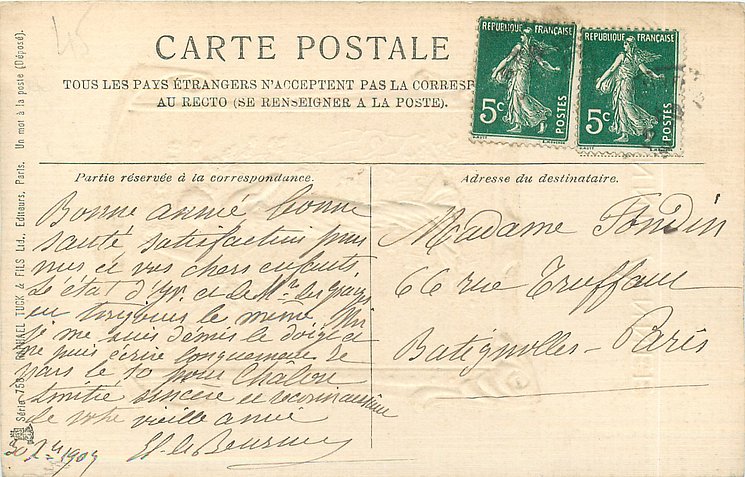 45
CARTE POSTALE
TOUS LES PAYS ÉTRANGERS N'ACCEPTENT PAS LA CORRESP
AU RECTO (SE RENSEIGNER A LA POSTE).
REPUBLIQUE FRANÇAISE
5c
POSTES
REPUBLIQUE FRANÇAISE
5c
POSTES
Série 758. RAPHAEL TUCK & FILS Ltd. Editeurs, Paris. Un mot à la poste (Déposé).
Partie réservée à la correspondance.
Bonne année bonne
santé satisfaction pour
vous et vos chers enfants.
Le état d'Yv. et de Mr
en toujours le même.
Je me suis démis le doigt et
ne puis écrire longuement Je
pars le 10 pour Châlon
Amitié sincère et
de votre vieille amie
1909
Adresse du destinataire.
Madame Fondin
66 rue Truffaut
Batignolles - Paris